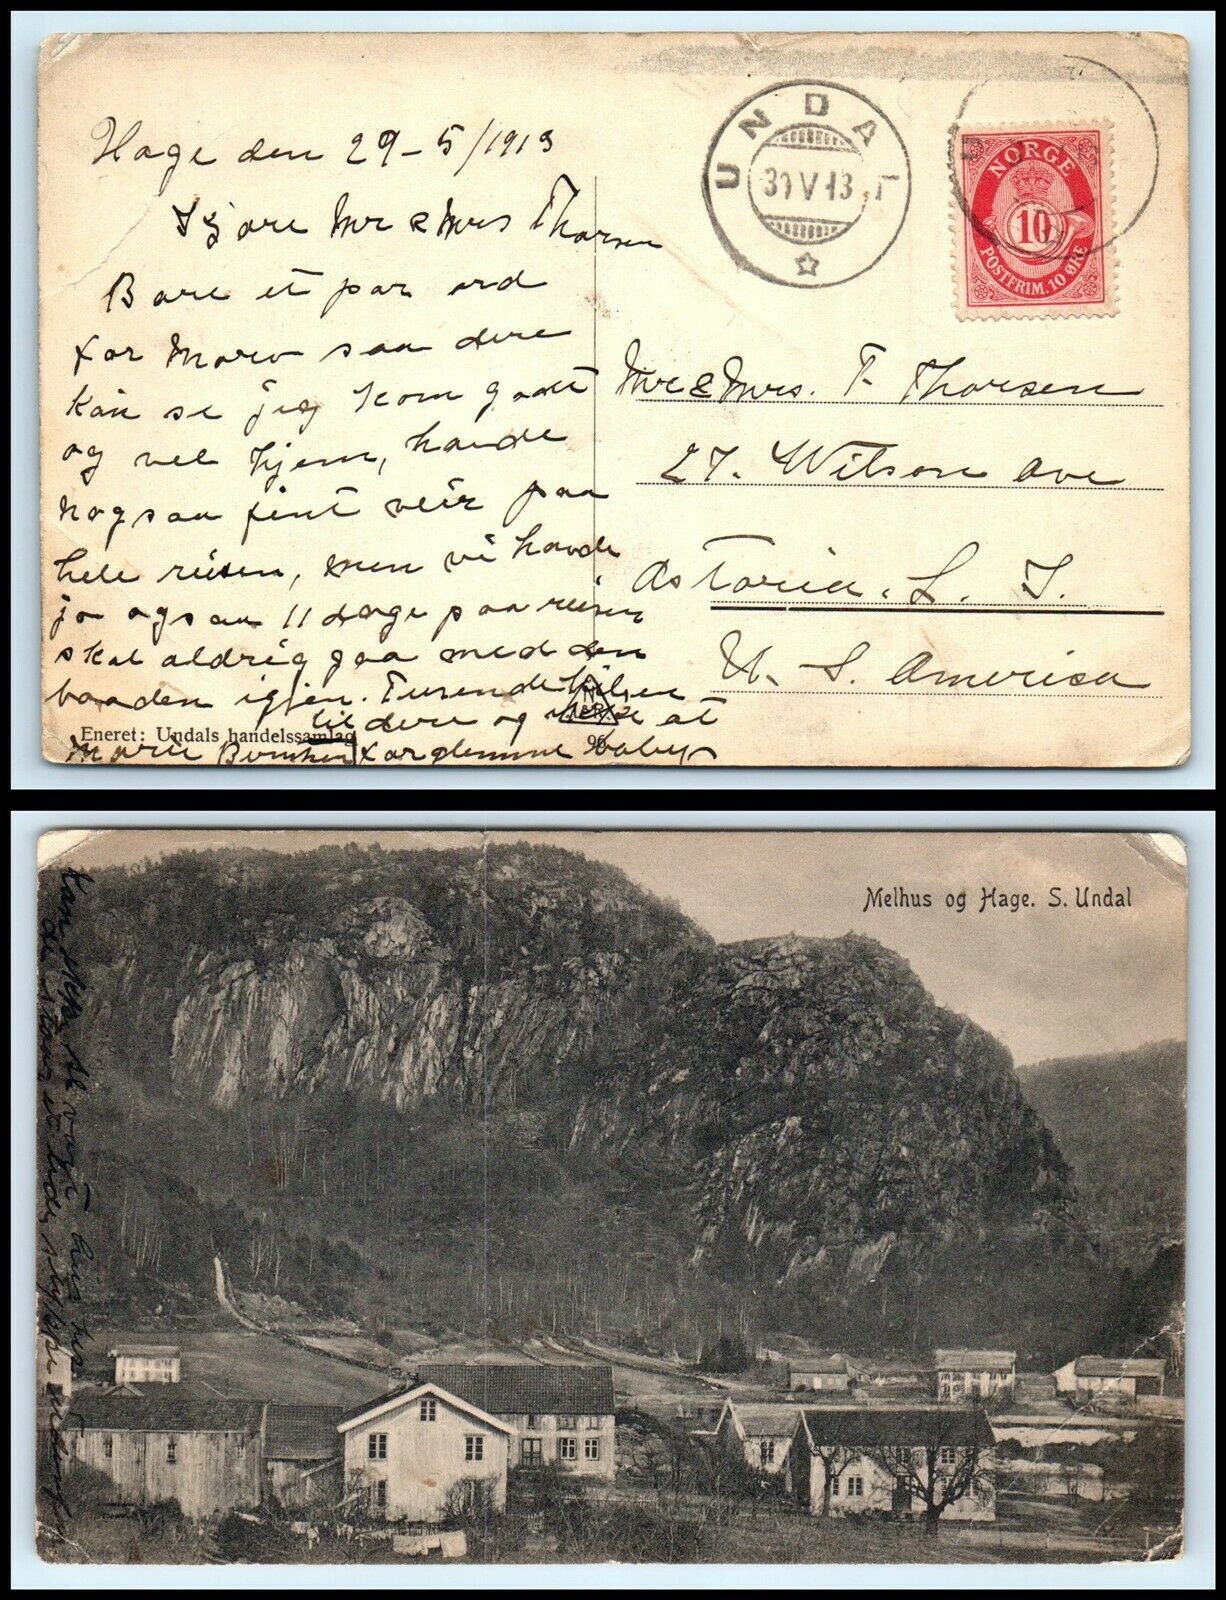 Hage den 29-5/1913
Kjære Mr & Mrs Thorsen
Bare et par ord
for Moro saa dere
kan se jeg kom godt
og vel hjem, havde
nogsaa fint veir paa
hele reisen, men vi havde
jo ogsaa 11 dage paa reisen
skal aldrig gaa med den
baaden igjen. Tusende hilsen
til dere og
Marie
Eneret: Undals handelssamlag
96
UNDAL
30 V 13
NORGE
10
POSTFRIM. 10 ØRE
Mr & Mrs. T. Thorsen
27. Wilson Ave
Astoria. L. I.
U. S. America
Melhus og Hage. S. Undal